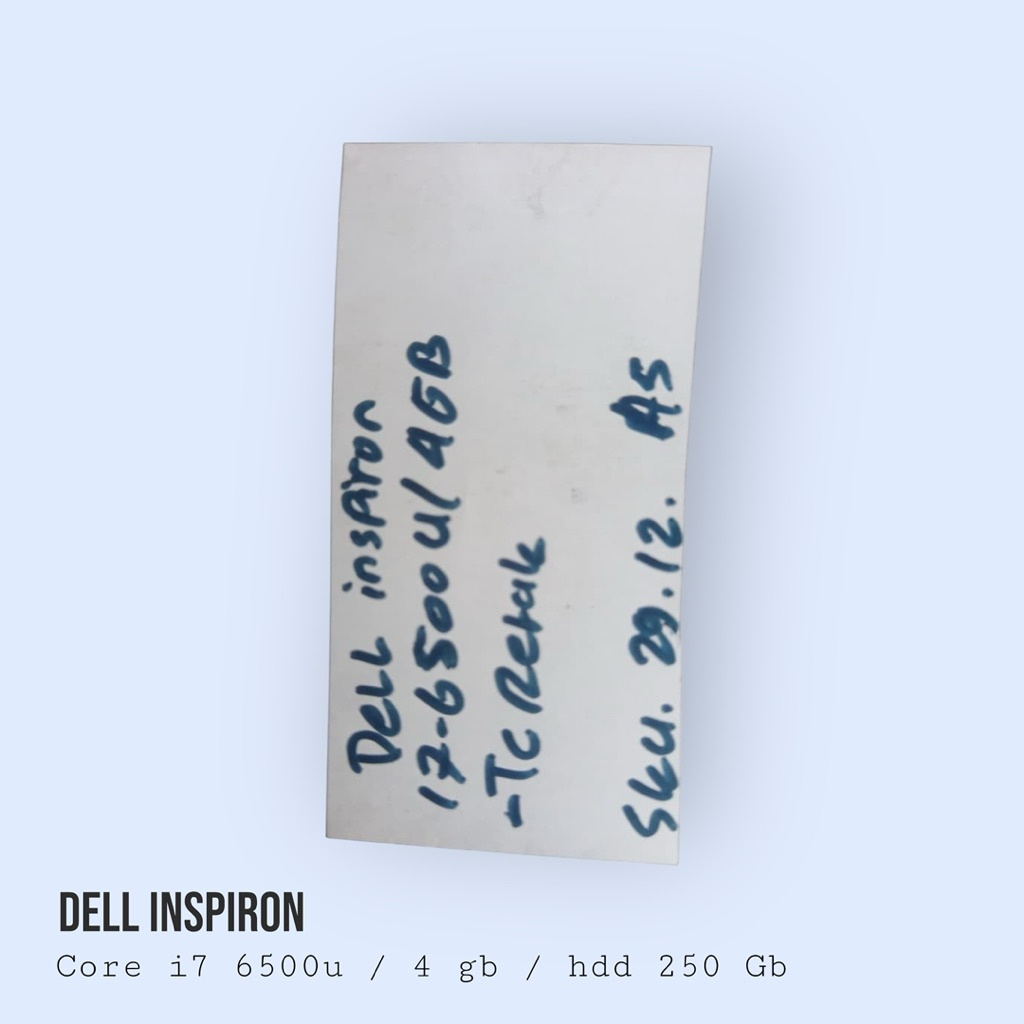 DELL inspiron
i7-6500U/4GB
-Tc Retak
Sku. 29.12. A5
DELL INSPIRON
Core i7 6500u / 4 gb / hdd 250 Gb